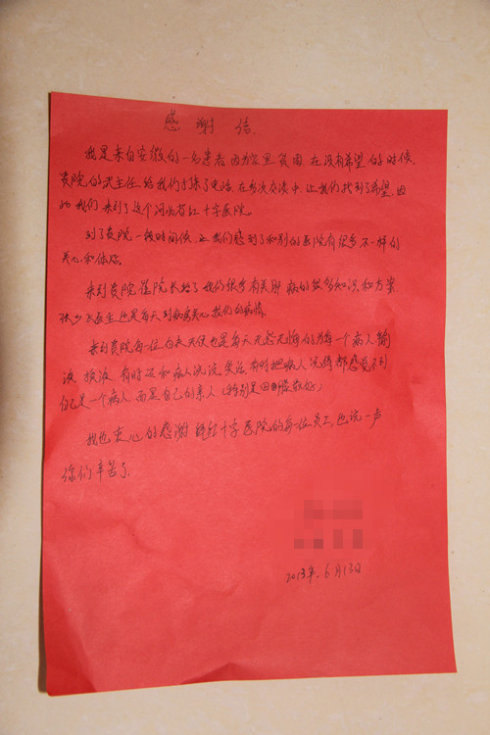 感谢信
我是来自安徽的一名患者因为家里贫困在没有希望的时候
贵院的武主任给我们打来了电话在多次交谈中让我们找到了希望因
此我们来到了这个河北省红十字医院。
到了贵院一段时间后让我们感到了和别的医院有很多不一样的
关心和体贴。
来到贵院崔院长给了我们很多有关肝病的很多知识和方案
张少飞医生还是每天到病房关心我们的病情
来到贵院每一位白衣天使也是每天无怨无悔的为每一个病人输
液 换液 有时还和病人说说笑笑有时把病人说得都感觉不到
自己是一个病人而是自己的亲人(特别是田
我也衷心的感谢 红十字医院的每一位员工也说一声
你们辛苦了
2013年.6月13日